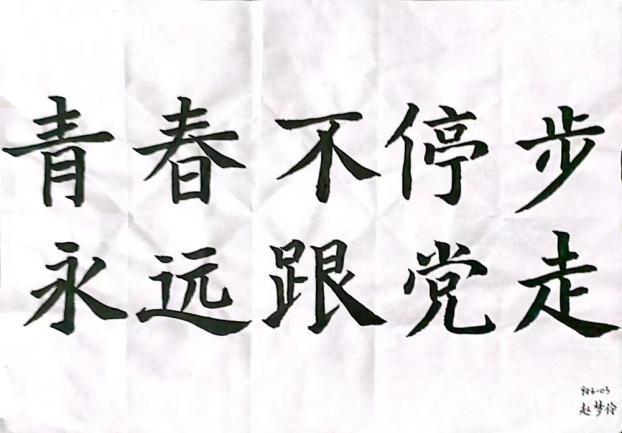 青春不停步
永远跟党走
赵梦伶